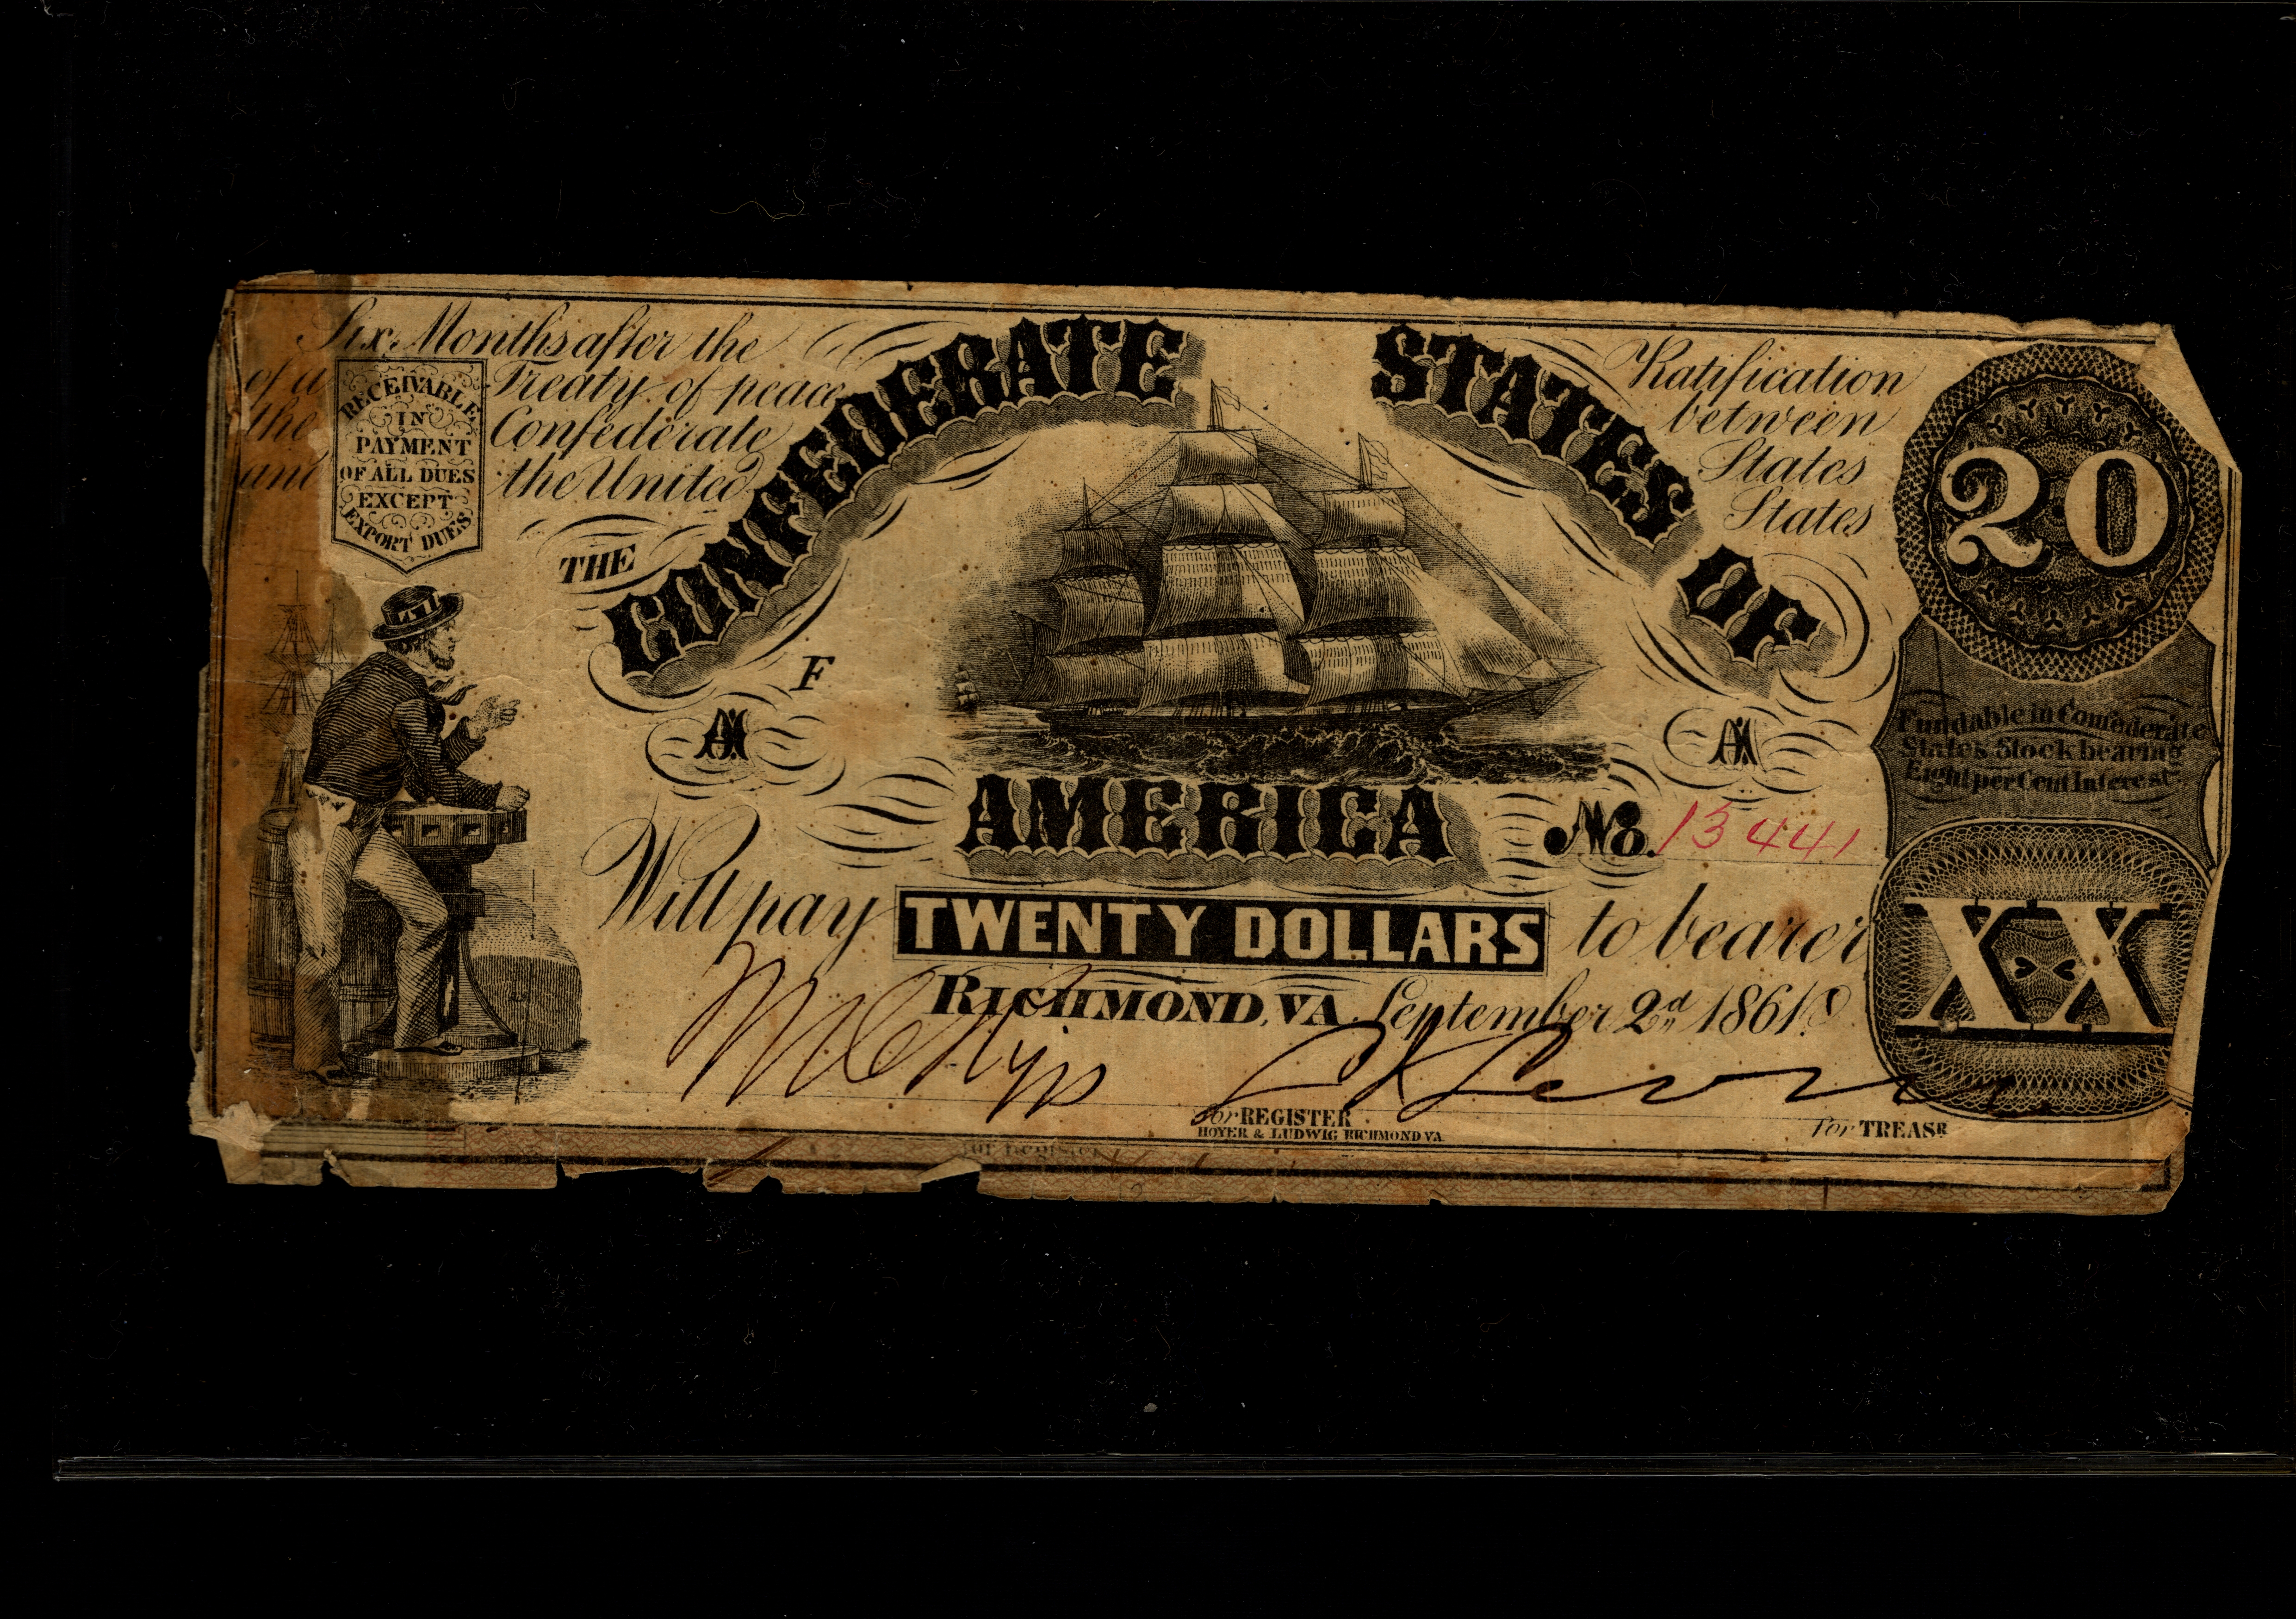 Six Months after the Ratification
of a Treaty of peace between
the Confederate States
and the United States
RECEIVABLE
IN
PAYMENT
OF ALL DUES
EXCEPT
EXPORT DUES
THE CONFEDERATE STATES OF
AMERICA
F
20
Fundable in Confederate
States Stock bearing
Eight per Cent Interest
No. 13441
Will pay TWENTY DOLLARS to bearer
XX
RICHMOND, VA. September 2nd 1861
For REGISTER
For TREASR
HOYER & LUDWIG RICHMOND VA